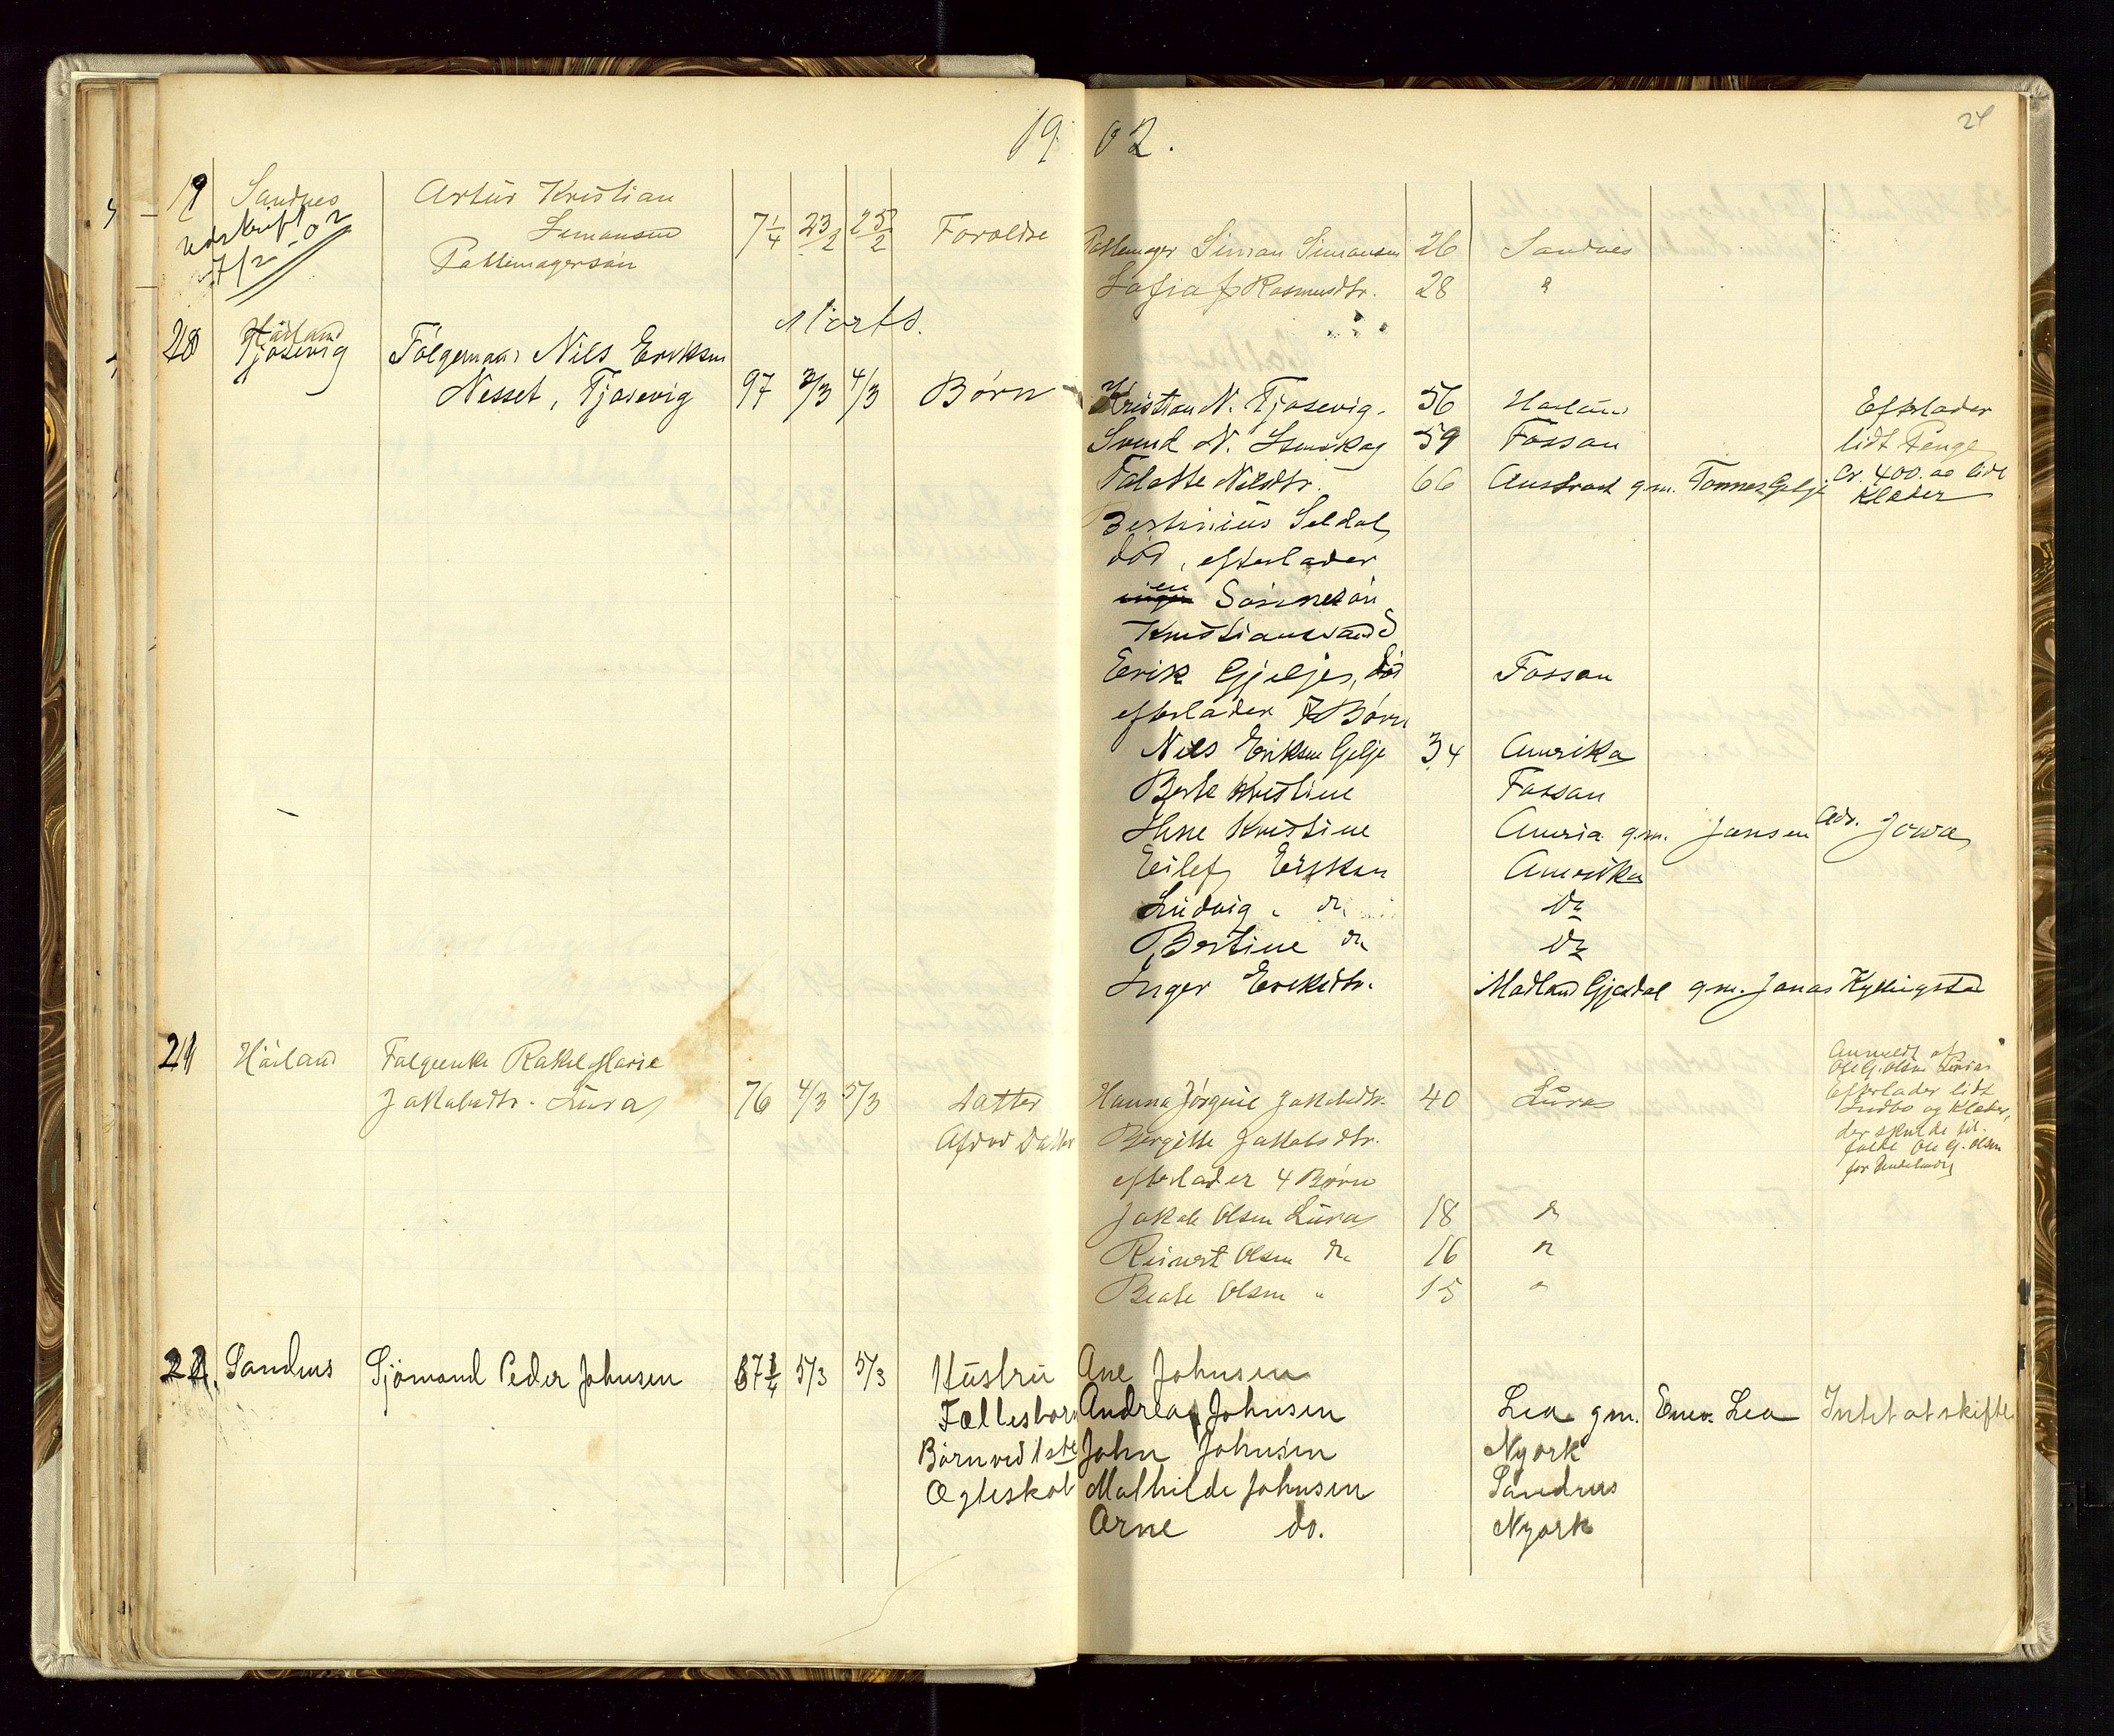 1902.
24
19 Sandnes Artur Kristian
Udskrift Simonsen 7 1/4 23/2 25/2 Foreldre Simon Simonsen 26 Sandnes
7/2 -02 Pottemagersøn
Sofia Rasmusdtr. 28 "
Marts.
20 Høiland
Tjosevig Nils Eriksen
Nesset, Tjosevig 97 3/3 4/3 Børn Kristian N. Tjosevig. 56 Høiland Efterlader
Svend N. 59 Fossan lidt Penge
Nilsdtr. 66 Austraat g.m. Tønnes Gelje Cr. 400. og lidt
Klæder
Bertinius Seldal
død, efterlader
en
Sønnesøn
Kristiansand
Erik Gjeljes, død Fossan
efterlader 7 Børn
Nils Eriksen Gelje 34 Amerika
Berte Kristine Fossan
Kristine Ameria g.m. Jansen Adr. Jowa
Eilef Eriksen Amerika
Ludvig " do do
Bertine do do
Inger Eriksdtr. Madland Gjesdal g.m. Jonas Kyllingstad
21 Høiland Rakel Marie Anmeldt af
Ole G. Olsen Luras
Jakobsdtr. Luras 76 4/3 5/3 Datter Hanna Jørgine Jakobsdtr. 40 Luras Efterlader lidt
Indbo og Klæder,
Afdød Datter Bergitte Jakobsdtr. der skulde til-
falde Ole G. Olsen
efterlader 4 Børn for
Jakob Olsen Luras 18 "
Reinert Olsen do 16 "
Beate Olsen " 15 "
22. Sandnes Sjømand Peder Johnsen 67 1/4 5/3 5/3 Hustru Ane Johnsen
Fællesbørn Andrea Johnsen Lea g.m. Enev. Lea Intet at skifte
Børn ved 1ste John Johnsen Nyork
Ægteskab Mathilde Johnsen Sandnes
Arne do. Nyork